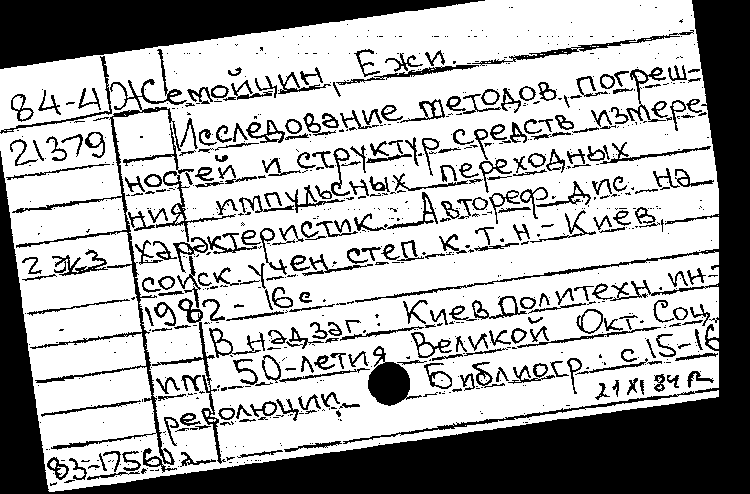 84-4 Жемойцин, Ежи.
21379 Исследование методов, погреш-
ностей и структур средств измере-
ния импульсных переходных
характеристик: Автореф. дис. на
2 экз соиск учен. степ. к.т.н.- Киев,
1982 - 16 с.
В надзаг.: Киев политехн. ин-
т им. 50-летия Великой Окт. Соц.
революции. Библиогр.: с.15-16
21 XI 84
83-17560а